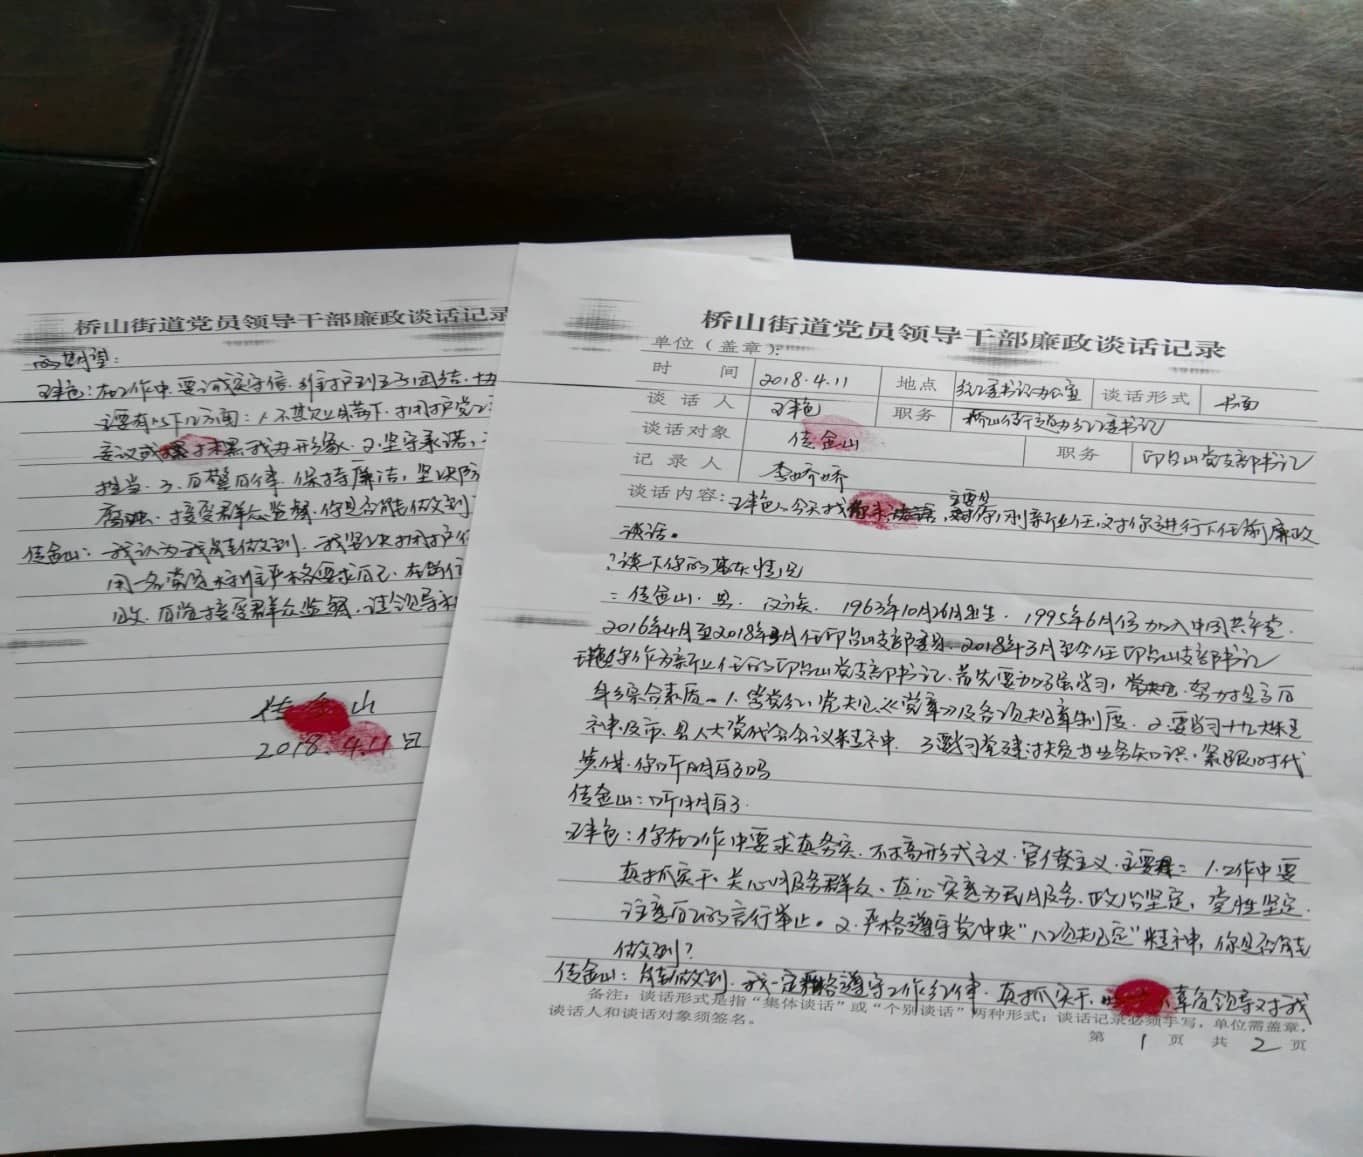 桥山街道党员领导干部廉政谈话记录
的期望:
在工作中要诚实守信,维护到了团结,
主要有以下几方面:1.不
妄议或抹黑我办形象.2.坚守承诺,
担当.3.自警自律,保持廉洁,坚决防
腐蚀.接受群众监督.你是否能做到
佳金山:我认为我能做到.我坚决拥护
用一名党员标准严格要求自己.在
自觉接受群众监督,请领导
佳金山
2018.4.11日
桥山街道党员领导干部廉政谈话记录
单位(盖章):
时间 2018.4.11 地点 纪工委书记办公室 谈话形式 书面
谈话人 职务 桥山街道办纪工委书记
谈话对象 佳金山 职务 印台山党支部书记
记录人 李娇娇
谈话内容: 今天找 谈话,主要是对你刚新上任,对你进行下任前廉政
谈话。
?谈下你的基本情况
=佳金山.男.汉族.1963年10月26日出生.1995年6月份加入中国共产党.
2016年4月至2018年3月任印台山支部委员.2018年3月至今任印台山支部书记
你作为新上任的印台山党支部书记.首先要加强学习,努力提高自
身综合素质.1.学党纪,党规《党章》及各项规章制度.2.要学习十九大精
神及市.县人大党代会会议精神.3.要学习党建扶贫业务知识.紧跟时代
步伐.你听明白了吗
佳金山:听明白了.
你在工作中要求真务实.不搞形式主义.官僚主义.主要:1.工作中要
真抓实干.关心服务群众.真心实意为民服务.政治坚定,党性坚定.
注意自己的言行举止。2.严格遵守党中央“八项规定”精神,你是否能
做到?
佳金山:能做到.我一定严格遵守工作纪律.真抓实干.不辜负领导对我
备注:谈话形式是指“集体谈话”或“个别谈话”两种形式;谈话记录必须手写,单位需盖章,
谈话人和谈话对象须签名。
第 1 页 共 2 页